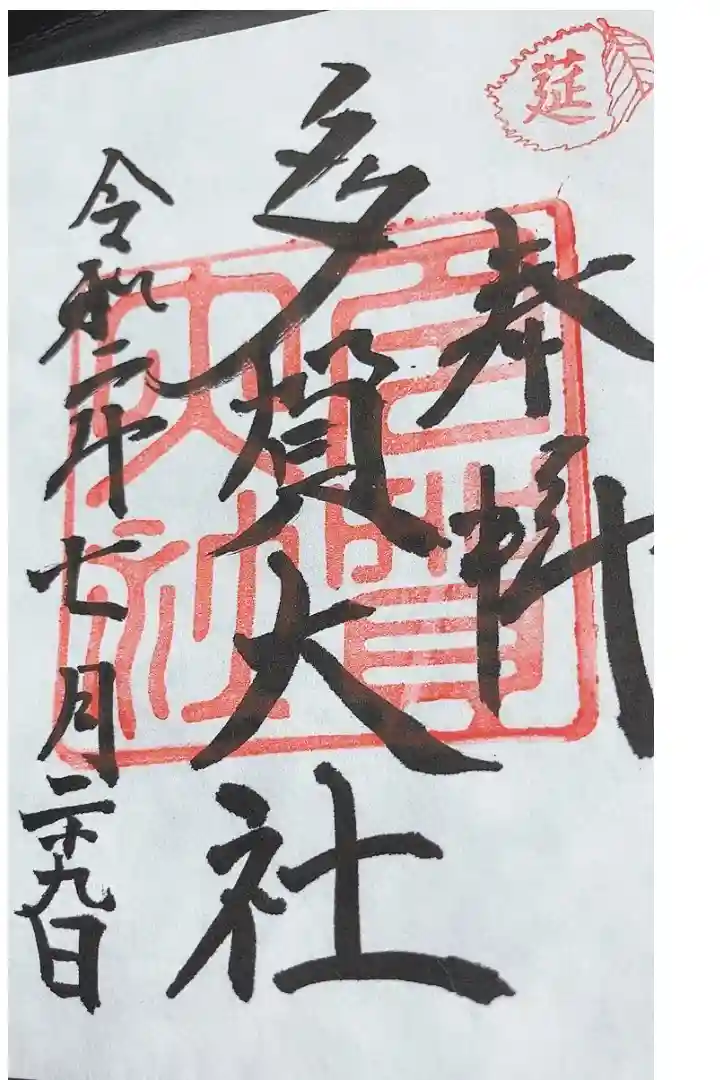 莚
奉拝
多賀大社
令和二年七月二十九日
多賀
大社